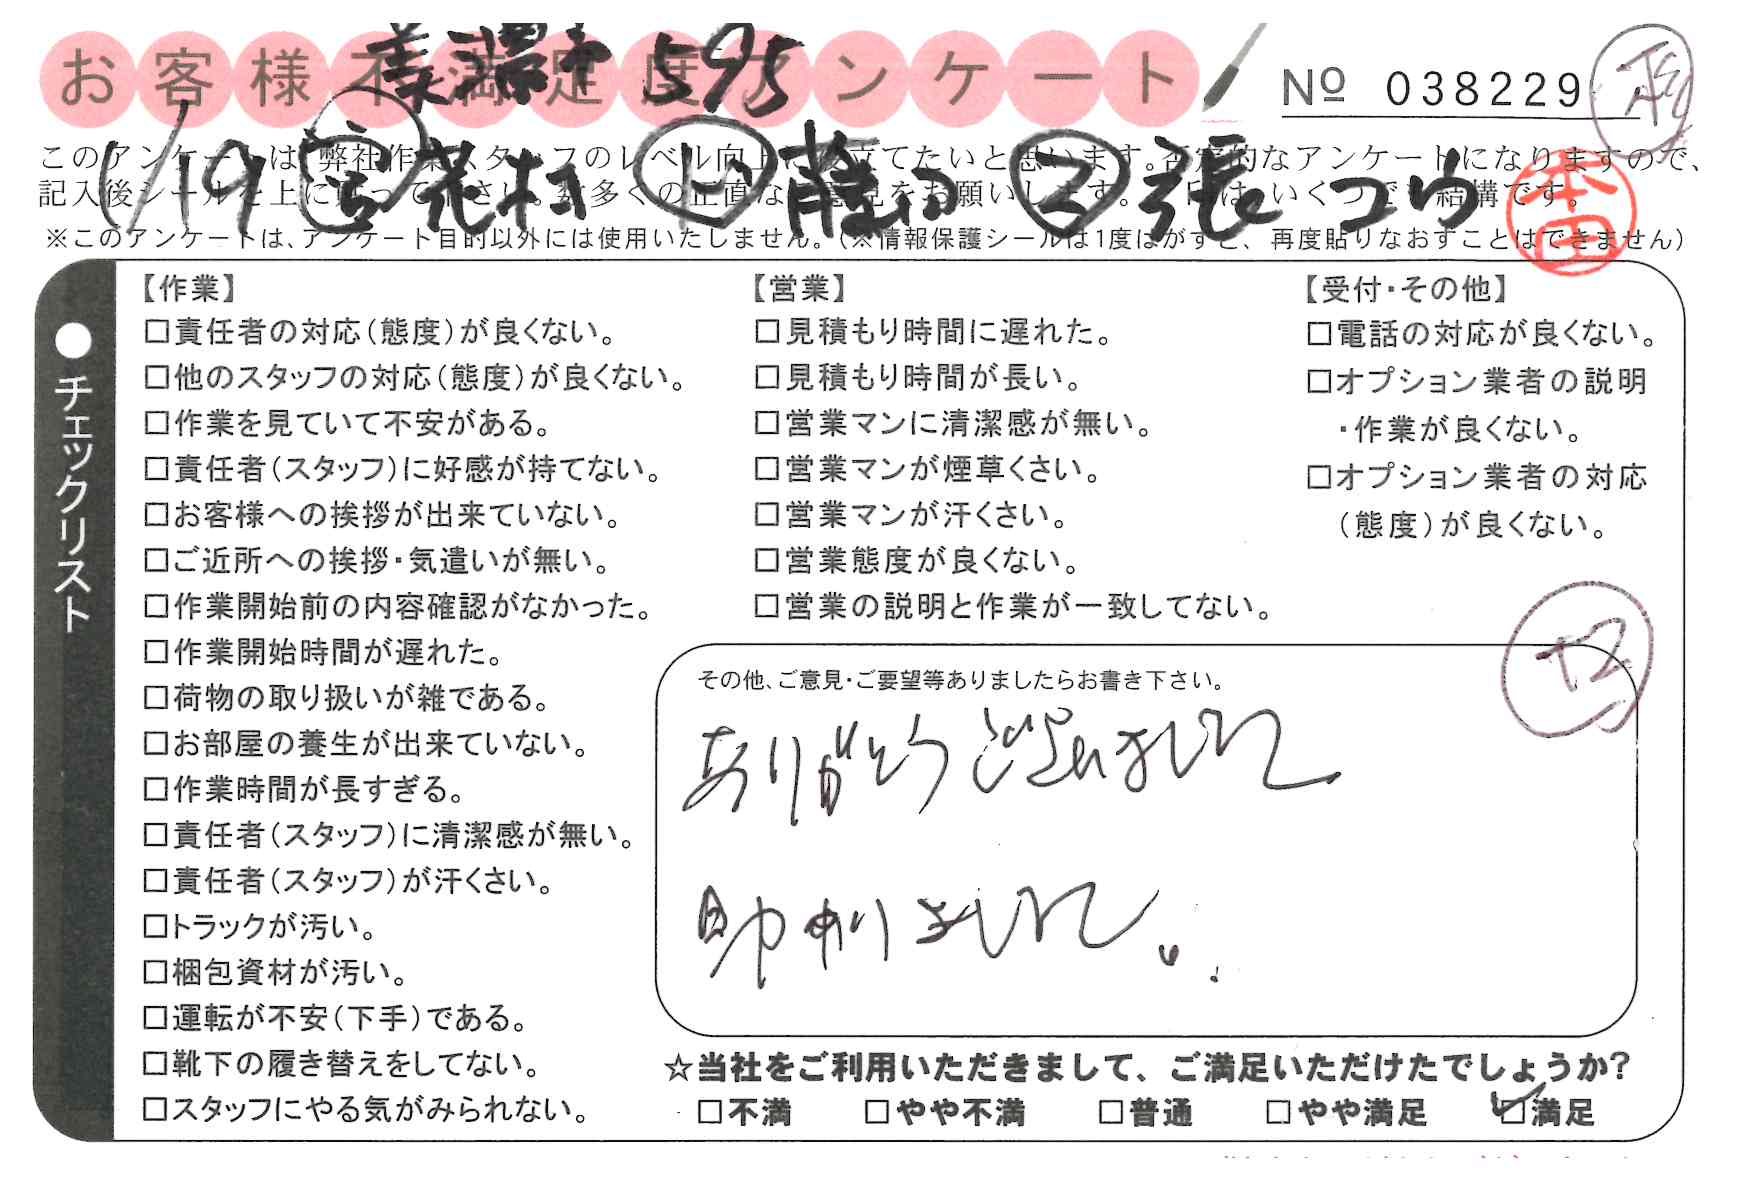 お客様不満足度アンケート
595
№ 038229
1/19
このアンケートは、弊社作業スタッフのレベル向上に役立てたいと思います。否定的なアンケートになりますので、
記入後シールを上に貼って下さい。数多くの正直なご意見をお願いします。チェック印は、いくつでも結構です。
本田
※このアンケートは、アンケート目的以外には使用いたしません。(※情報保護シールは1度はがすと、再度貼りなおすことはできません)
●チェックリスト
【作業】
□責任者の対応(態度)が良くない。
□他のスタッフの対応(態度)が良くない。
□作業を見ていて不安がある。
□責任者(スタッフ)に好感が持てない。
□お客様への挨拶が出来ていない。
□ご近所への挨拶・気遣いが無い。
□作業開始前の内容確認がなかった。
□作業開始時間が遅れた。
□荷物の取り扱いが雑である。
□お部屋の養生が出来ていない。
□作業時間が長すぎる。
□責任者(スタッフ)に清潔感が無い。
□責任者(スタッフ)が汗くさい。
□トラックが汚い。
□梱包資材が汚い。
□運転が不安(下手)である。
□靴下の履き替えをしてない。
□スタッフにやる気がみられない。
【営業】
□見積もり時間に遅れた。
□見積もり時間が長い。
□営業マンに清潔感が無い。
□営業マンが煙草くさい。
□営業マンが汗くさい。
□営業態度が良くない。
□営業の説明と作業が一致してない。
【受付・その他】
□電話の対応が良くない。
□オプション業者の説明
・作業が良くない。
□オプション業者の対応
(態度)が良くない。
その他、ご意見・ご要望等ありましたらお書き下さい。
ありがとうございました
助かりました。
☆当社をご利用いただきまして、ご満足いただけたでしょうか?
□不満 □やや不満 □普通 □やや満足 ☑満足